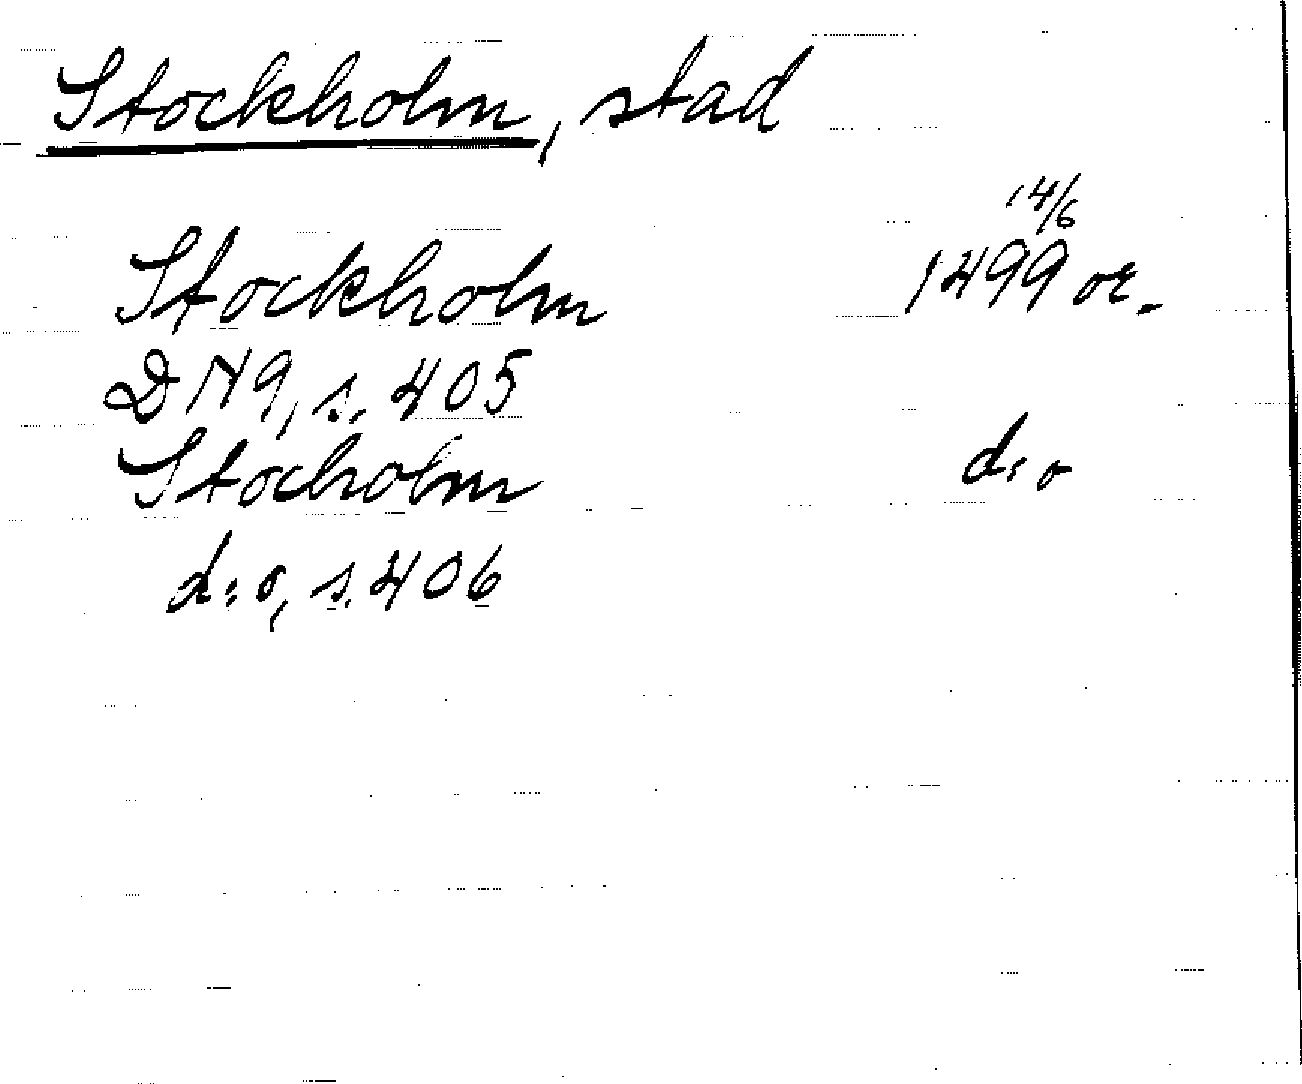 Stockholm, stad
14/6
Stockholm 1499 or.
DN9, s. 405
Stocholm d:o
d:o, s. 406